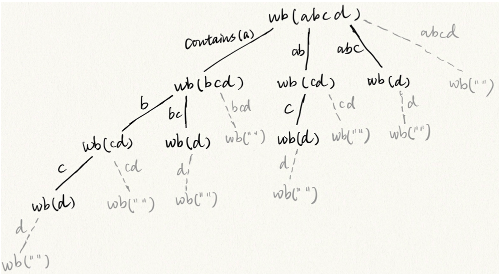 wb(abcd)
Contains(a) ab abc abcd
wb(bcd) wb(cd) wb(d) wb("")
b bc bcd c cd d
wb(cd) wb(d) wb("") wb(d) wb("") wb("")
c cd d d
wb(d) wb("") wb("") wb("")
d
wb("")